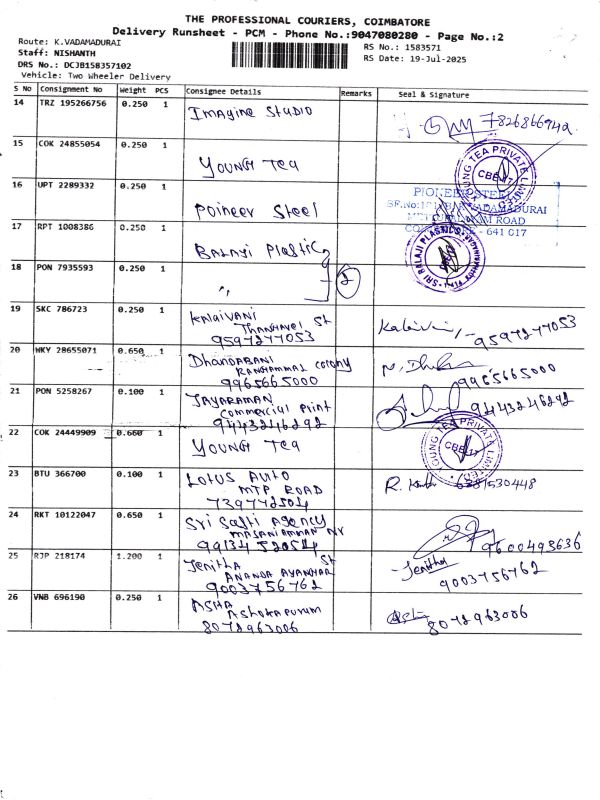 THE PROFESSIONAL COURIERS, COIMBATORE
Delivery Runsheet - PCM - Phone No.:9047080280 - Page No.:2
Route: K.VADAMADURAI
Staff: NISHANTH
DRS No.: DCJB158357102
Vehicle: Two Wheeler Delivery
RS No.: 1583571
RS Date: 19-Jul-2025
S No Consignment No Weight PCS Consignee Details Remarks Seal & Signature
14 TRZ 195266756 0.250 1 Imagine Studio 7826866942
15 COK 24855054 0.250 1 Young Tea
YOUNG TEA PRIVATE LIMITED CBE-17
16 UPT 2289332 0.250 1 Poineer Steel
PIONEER STEEL
METTUPALAYAM ROAD
641 017
17 RPT 1008386 0.250 1 Balaji Plastic
SRI BALAJI PLASTICS
18 PON 7935593 0.250 1 " 2
19 SKC 786723 0.250 1 Kalaivani
Thangavel St
9597277053 9597277053
20 WKY 28655071 0.650 1 Dhandabani
Rangammal colony
9965665000 9965665000
21 PON 5258267 0.100 1 Jayaraman
Commercial Print
9443246292 9443246292
22 COK 24449909 0.660 1 Young Tea
YOUNG TEA PRIVATE LIMITED CBE-17
23 BTU 366700 0.100 1 Lotus Auto
MTP Road
739772504 6381530448
24 RKT 10122047 0.650 1 Sri Sakti Agency
Masaniamman
9600493636
25 RJP 218174 1.200 1 Jenitha St
Ananda Ayanhar
9003756762 Jenitha
9003756762
26 VNB 696190 0.250 1 Asha
Ashokapuram
8072963006 8072963006